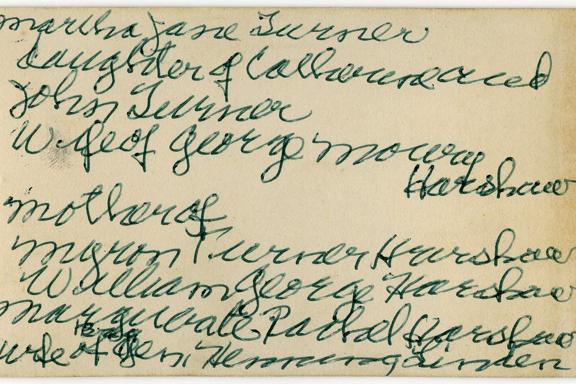 Martha Jane Turner
daughter of Catharine and
John Turner
Wife of George Mowry
Harshaw
mother of
Myron Turner Harshaw
William George Harshaw
Marguerite Rachel Harshaw
wife of Henning Linden